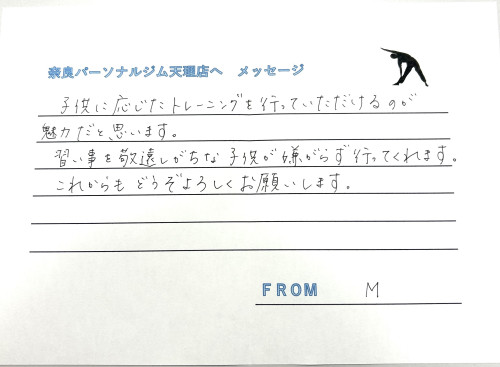 奈良パーソナルジム天理店へ　メッセージ
子供に応じたトレーニングを行っていただけるのが
魅力だと思います。
習い事を敬遠しがちな子供が嫌がらず行ってくれます。
これからもどうぞよろしくお願いします。
FROM M